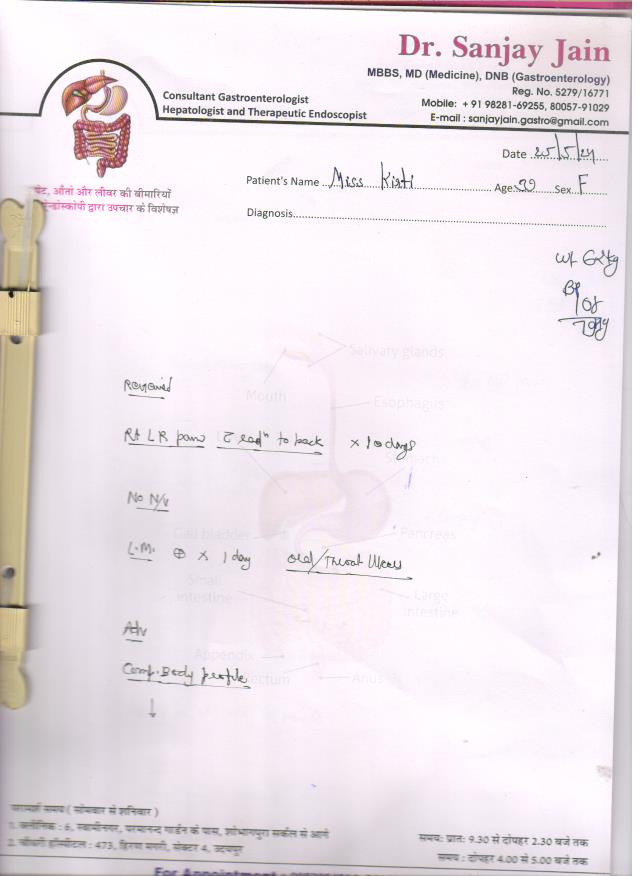 Dr. Sanjay Jain
MBBS, MD (Medicine), DNB (Gastroenterology)
Reg. No. 5279/16771
Mobile: +91 98281-69255, 80057-91029
E-mail : sanjayjain.gastro@gmail.com
Consultant Gastroenterologist
Hepatologist and Therapeutic Endoscopist
पेट, आँतों और लीवर की बीमारियों
एन्डोस्कोपी द्वारा उपचार के विशेषज्ञ
Date 25/5/24
Patient's Name Miss Kisti Age 39 Sex F
Diagnosis
Wt 62kg
BP
Salivary glands
Mouth
Esophagus
Reviewed
Rt LR pain to back x 10 days
No N/V
Gall bladder
Pancreas
L.M. ⊕ x 1 day Oral/Throat Ulcers
Small intestine
Large intestine
Adv
Appendix
Comp. Body profile
Rectum
Anus
↓
परामर्श समय ( सोमवार से शनिवार )
1. क्लीनिक : 6, स्वामीनगर, परमानन्द गार्डन के पास, शोभागपुरा सर्कल से आगे
समय: प्रातः 9.30 से दोपहर 2.30 बजे तक
2. चौधरी हॉस्पीटल : 473, हिरण मगरी, सेक्टर 4, उदयपुर
समय : दोपहर 4.00 से 5.00 बजे तक
For Appointment :